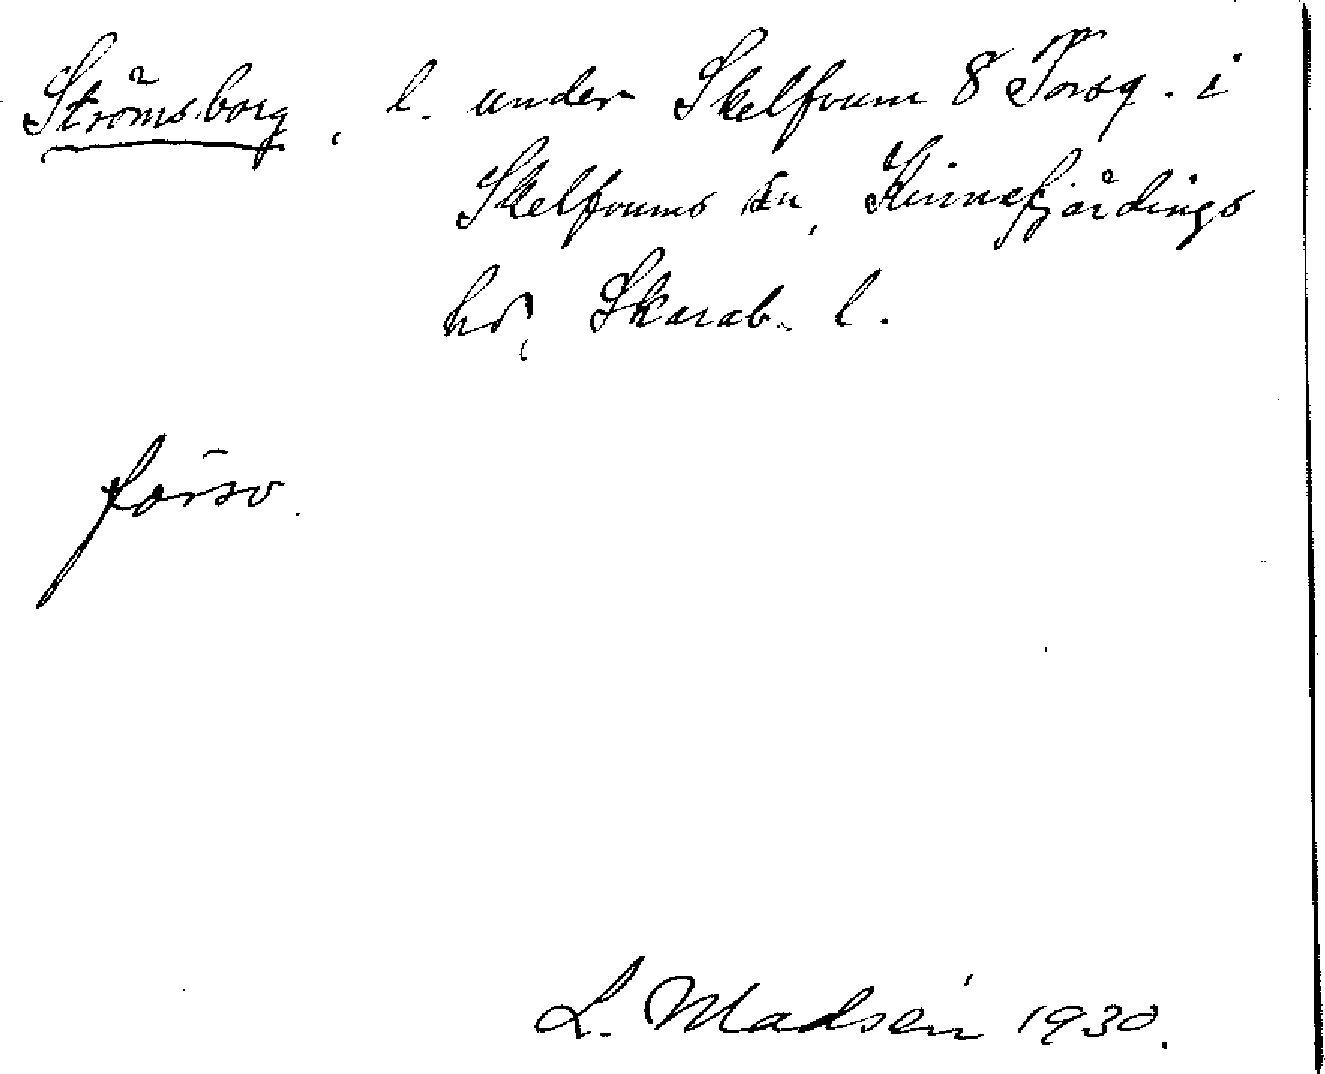 Strömsborg, l. under Skelfvum 8 Torsg. i
Skelfvums sn, Kinnefjärdings
hd, Skarab. l.
försv.
L. Madsén 1930.